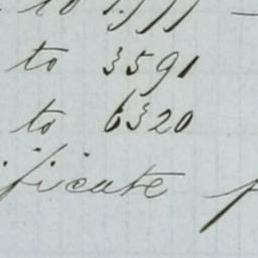 to
to 3591
to 6320
ificate